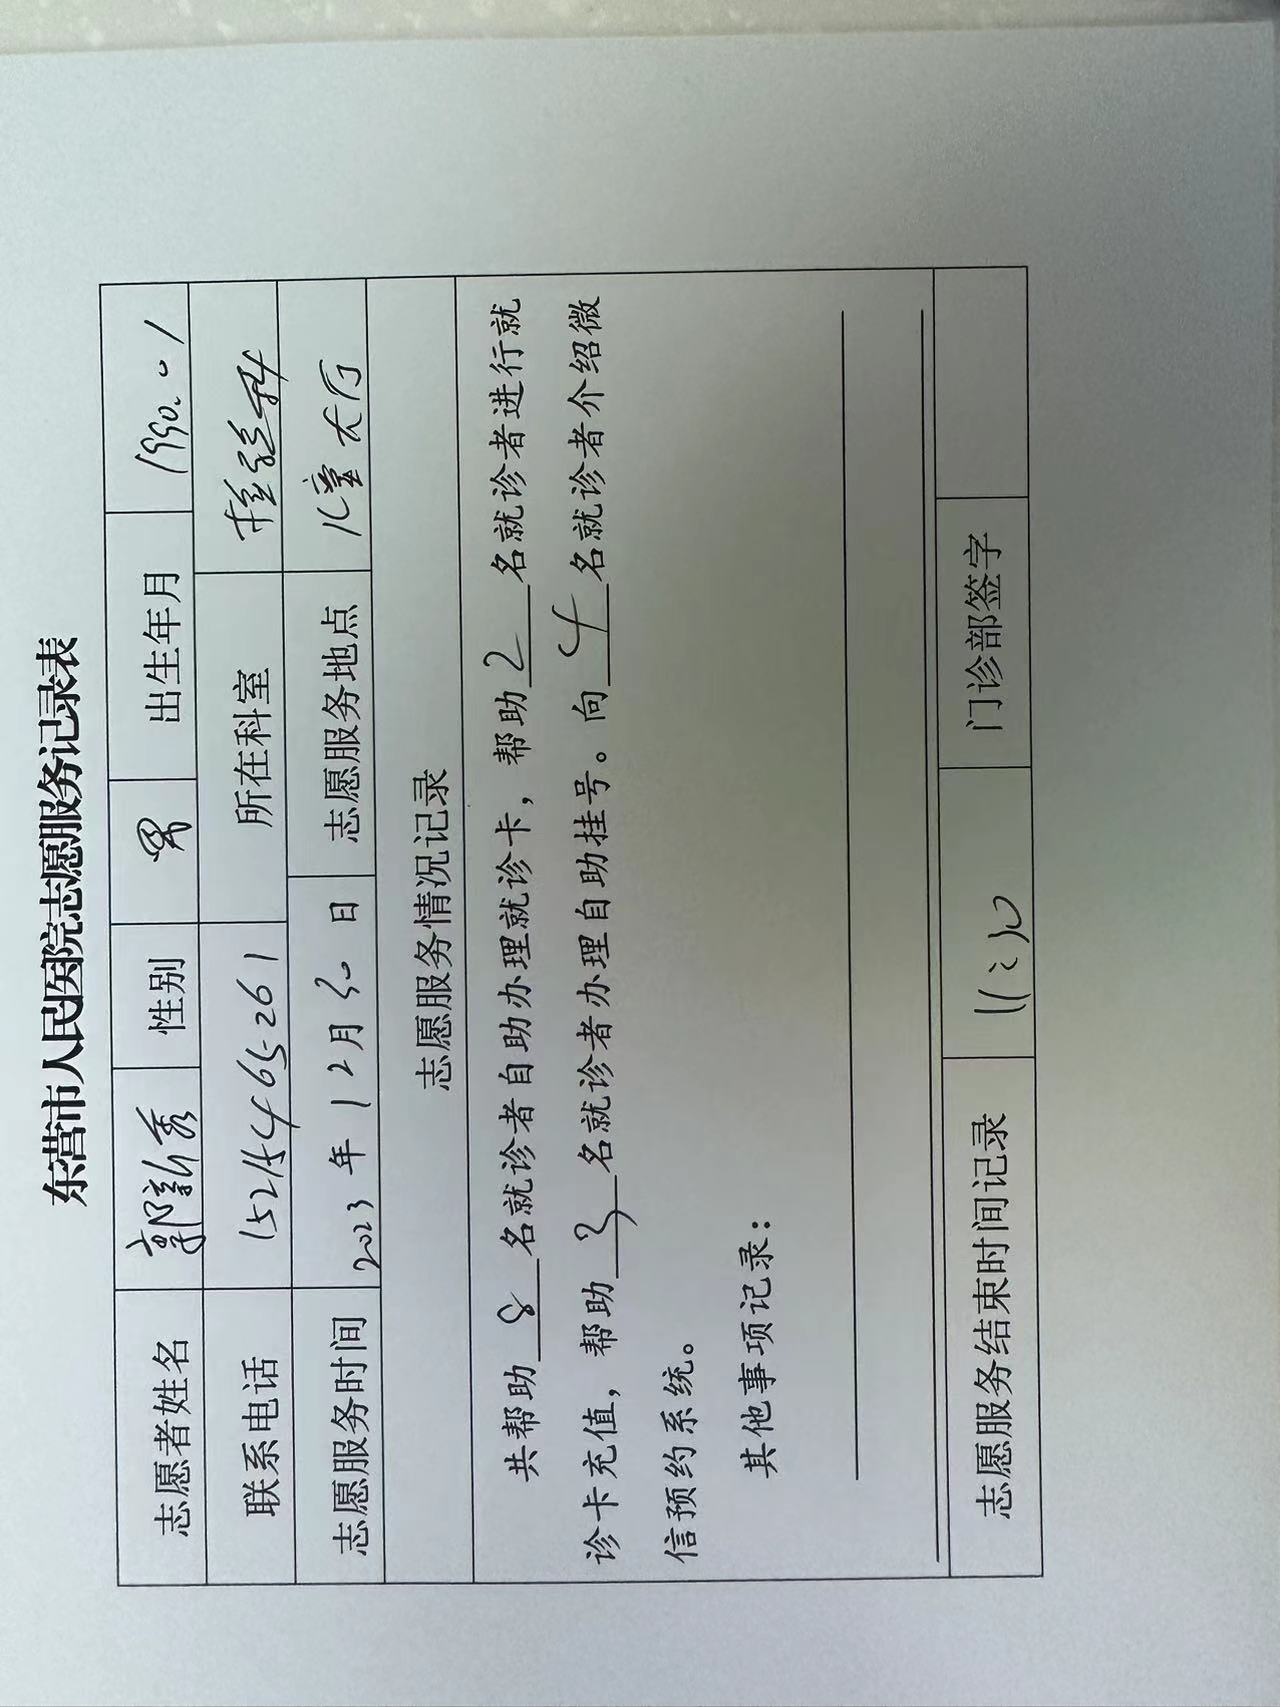 东营市人民医院志愿服务记录表
志愿者姓名 郭新秀 性别 男 出生年月 1990.01
联系电话 所在科室 检验科
志愿服务时间 2023年12月30日 志愿服务地点 儿童大厅
志愿服务情况记录
共帮助8名就诊者自助办理就诊卡，帮助2名就诊者进行就
诊卡充值，帮助3名就诊者办理自助挂号。向4名就诊者介绍微
信预约系统。
其他事项记录：
志愿服务结束时间记录 11:30 门诊部签字